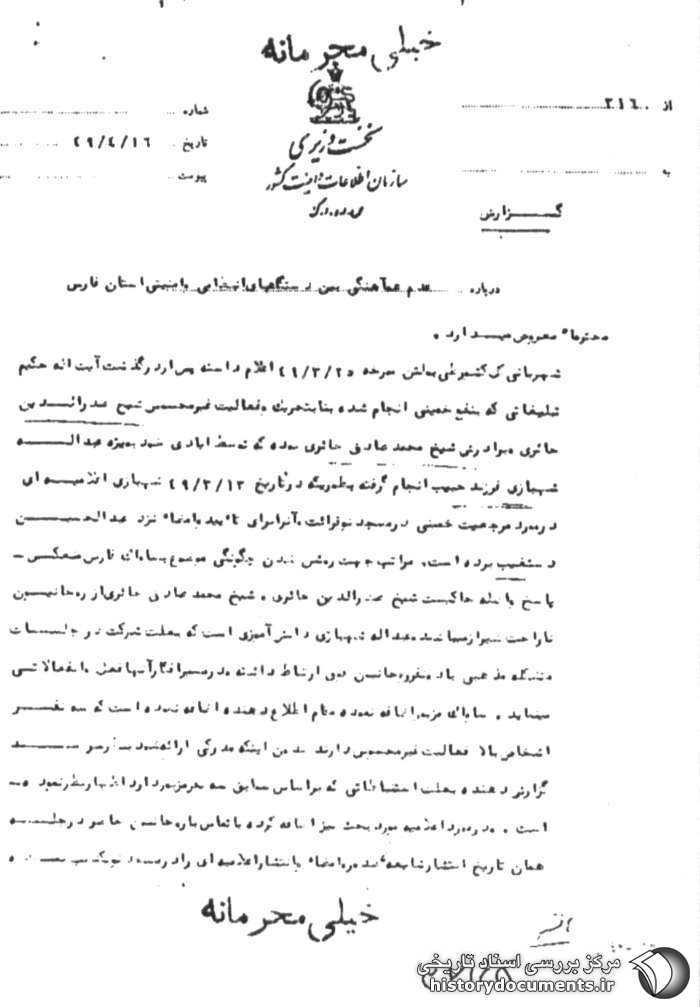 خیلی محرمانه
از ۳۱۶۰
شماره
تاریخ ۴۹/۴/۱۶
به
پیوست
نخست وزیری
سازمان اطلاعات و امنیت کشور
گزارش
درباره عدم هماهنگی بین دستگاههای انتظامی و امنیتی استان فارس
محترما" معروض میدارد.
شهربانی کل کشور طی بولتن مورخه ۴۹/۳/۲۵ اعلام داشته پس از درگذشت آیت اله حکیم
تبلیغاتی که بنفع خمینی انجام شده بنا بتحریک و فعالیت غیرمحسوس شیخ صدرالدین
حائری و برادرش شیخ محمد صادق حائری بوده که توسط ایادی خود بویژه عبداله
شهبازی فرزند حبیب انجام گرفته بطوریکه در تاریخ ۴۹/۳/۱۳ شهبازی اعلامیه ای
در مورد مرجعیت خمینی در مسجد نو قرائت و آنرا برای تائید و امضاء نزد عبدالحسین
دستغیب برده است. مراتب جهت روشن شدن چگونگی موضوع بساواک فارس منعکس
پاسخ واصله حاکیست شیخ صدرالدین حائری و شیخ محمد صادق حائری از روحانیون
ناراحت شیراز میباشند و عبداله شهبازی دانش آموزی است که بعلت شرکت در جلسات
متشکله مذهبی با دو نفر روحانیون فوق ارتباط داشته و در مسیر افکار آنها فعل و انفعالاتی
مینماید. ساواک مزبور اضافه نموده مقام اطلاع دهنده اضافه نموده است که سه نفر
اشخاص بالا فعالیت غیرمحسوس دارند بدون اینکه مدرکی ارائه شود
گزارش دهنده بعلت که بر اساس سوابق سه نفر مزبور دارد اظهار نظر نموده
است. در مورد اعلامیه مورد بحث نیز اضافه کرده با تماس با روحانیون حاضر در جلسه
همان تاریخ انتشار و امضاء یا انتشار اعلامیه ای را در مسجد نو تکذیب
خیلی محرمانه
مرکز بررسی اسناد تاریخی
historydocuments.ir